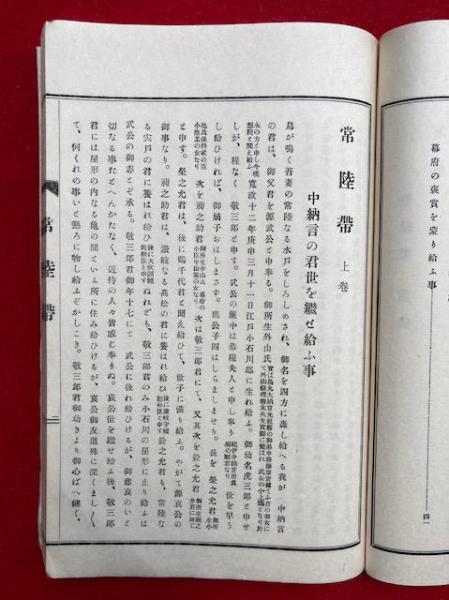 幕府の褒賞を蒙り給ふ事
四一
常陸帶 上卷
中納言の君世を繼ぜ給ふ事
鳥が鳴く吾妻の常陸なる水戸をしろしめされ、御名を四方に轟し給へる我が 中納言
の君は、御父君を源武公と申奉る。御所生外山氏
寬政十二年庚申三月十一日江戸小石川邸に生れ給ふ。御幼名虎三郎と申せ
しが、程なく 敬三郎と申す。武公の簾中は恭穆夫人と申し奉り 世を早う
し給ひければ、御嫡子おはしまさず。庶公子四はしらましませり。長を 榮之允君
次を銈之助君 次は敬三郎君にて、又其次を銓之允君
と申す。榮之允君は、後に鶴千代君と聞え給ひて、世子に備り給ふ。やがて源哀公の
御事なり。 之助君は、讃岐なる高松の君に養はれ給ひ 銓之允君も、常陸な
る宍戸の君に養はれ給ひ ぬれども、敬三郎君のみ小石川の屋形に止り給ふは
武公の御志とぞ承る。敬三郎君御年十七にて 武公に後れ給ひけるが、御悲哀のいと
切なる事たとへんかたなく、近侍の人々皆感じ奉りぬ。哀公世を繼せ給ふ後、敬三郎
君には屋形の內なる龜の間といふ所に住み給ひけるが、哀公御友道殊に深くましく、
て、何くれの事いと懇ろに物し給ふぞかしこき。敬三郎君御幼きより御心ばへ健く、
常陸帶
一